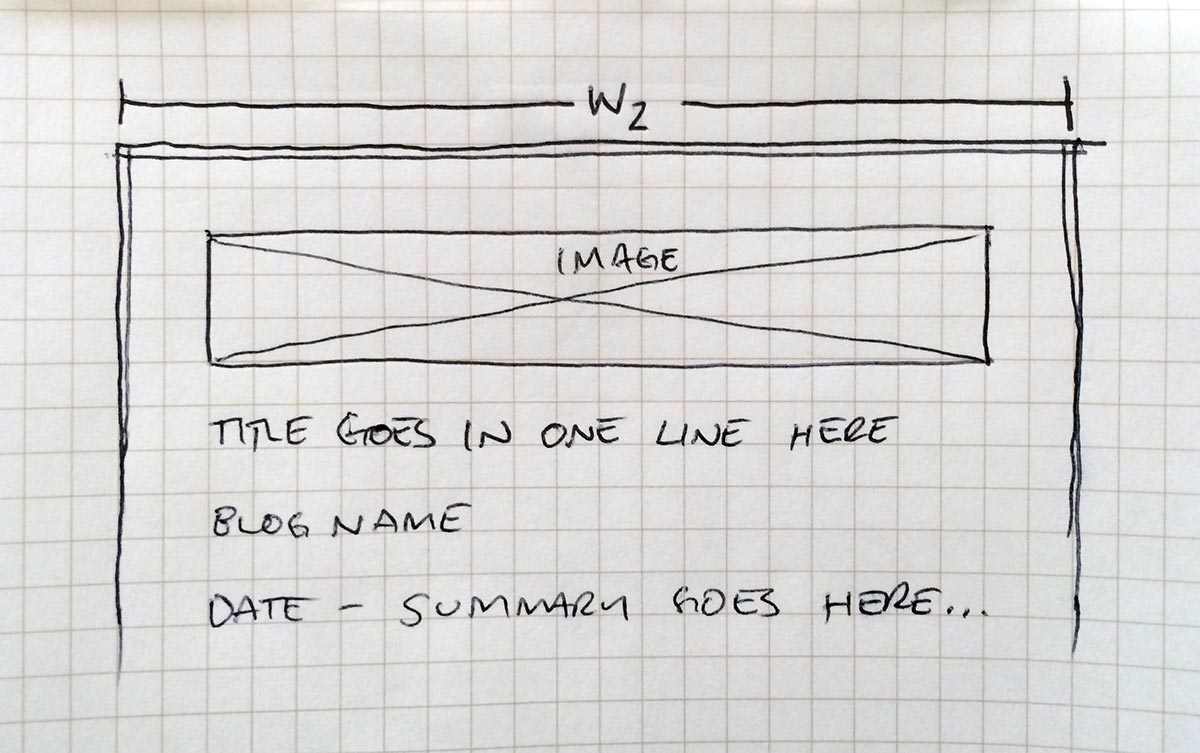 W2
IMAGE
TITLE GOES IN ONE LINE HERE
BLOG NAME
DATE - SUMMARY GOES HERE...